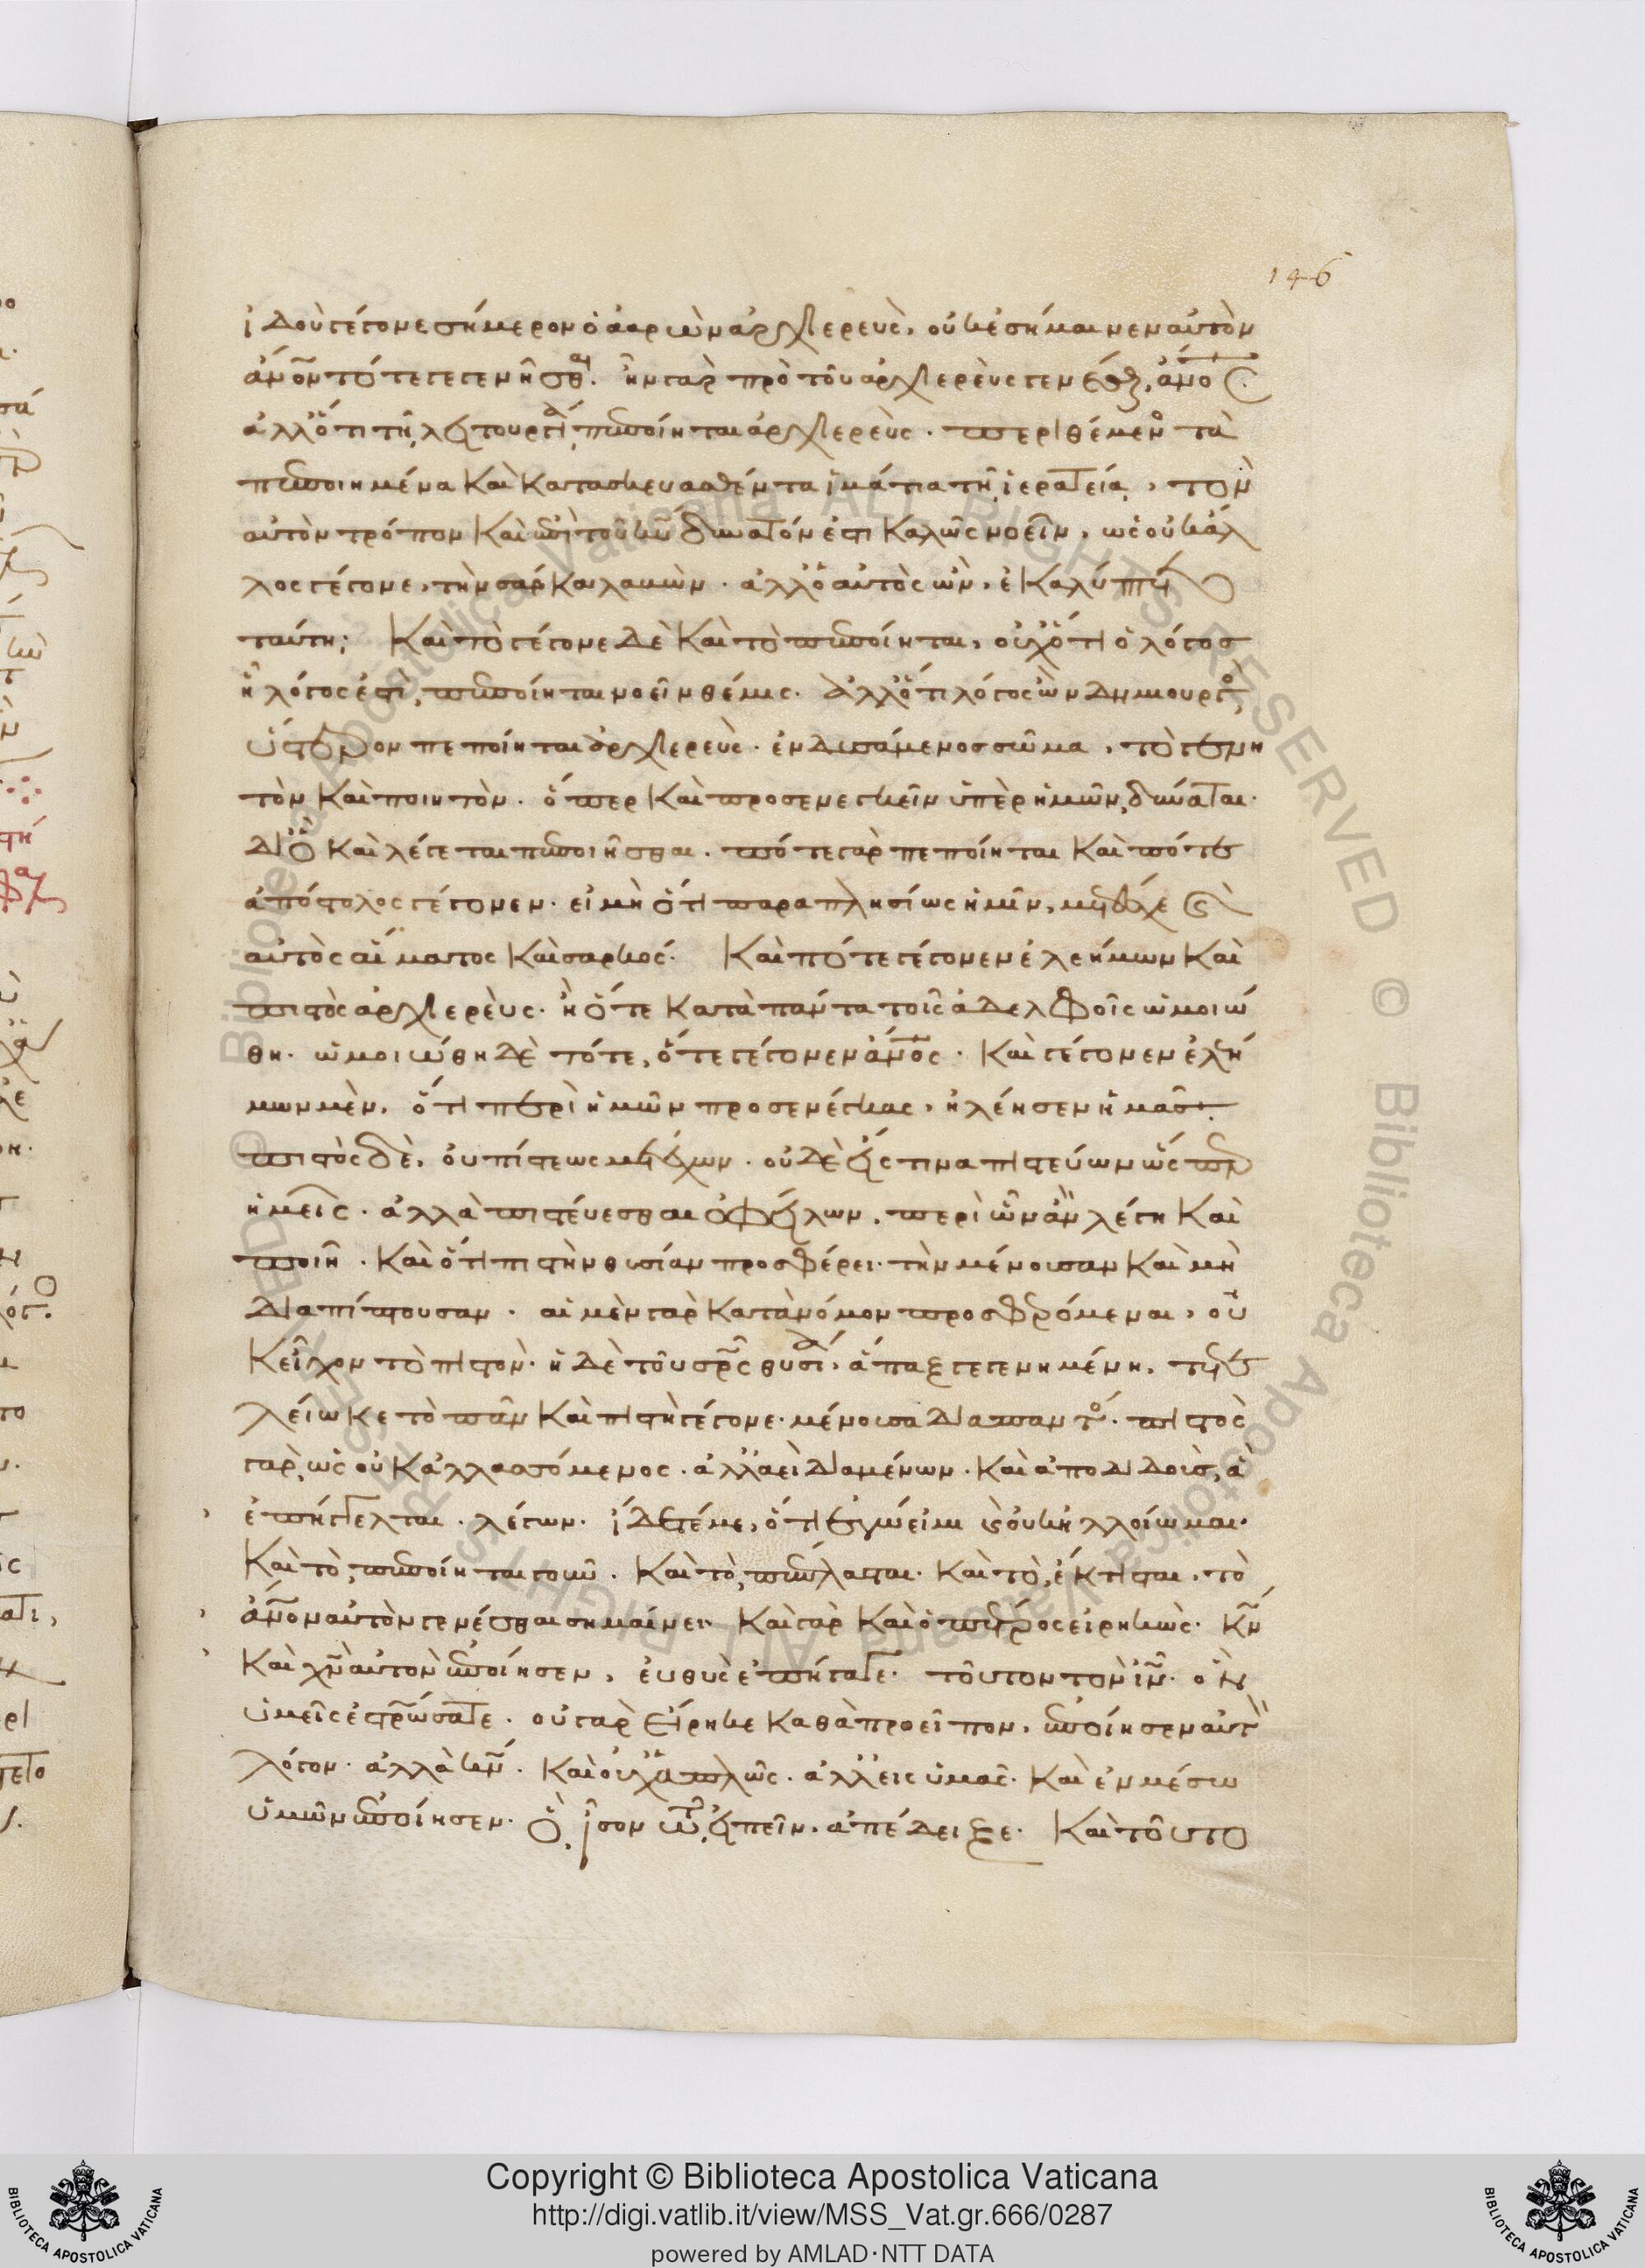 146
ἰδοὺ γέγονε σήμερον ὁ ἀαρὼν ἀρχιερεύς, οὐκ ἐσήμαινεν αὐτὸν
ἄνον τότε γεγενῆσθαι. ἦν γὰρ πρὸ τοῦ ἀρχιερεὺς γενέσθαι, ἄνος.
ἀλλ' ὅτι τῇ λειτουργίᾳ πεποίηται ἀρχιερεὺς. περιθέμενος τὰ
πεποιημένα καὶ κατασκευασθέντα ἱμάτια τῇ ἱερατείᾳ, τὸν
αὐτὸν τρόπον καὶ ἐπὶ τοῦ κυ δυνατόν ἐστι καλῶς νοεῖν, ὡς οὐκ ἄλ
λος γέγονε, τὴν σάρκα λαβών. ἀλλ' ὁ αὐτὸς ὢν, ἐκαλύπτετο
ταύτη; καὶ τὸ γέγονε δὲ καὶ τὸ πεποίηται, οὐχ' ὅτι ὁ λόγοσ
ἢ λόγος ἐστὶ, πεποίηται νοεῖν θέμις. ἀλλ' ὅτι λόγος ὢν δημιουργὸς,
ὕστερον πεποίηται ἀρχιερεὺς. ἐνδυσάμενοσ σῶμα, τὸ γενη
τὸν καὶ ποιητὸν. ὅπερ καὶ προσενεγκεῖν ὑπὲρ ἡμῶν, δύναται.
διὸ καὶ λέγεται πεποιῆσθαι. πότε γὰρ πεποίηται καὶ πότε
ἀπόστολος γέγονεν. εἰ μὴ ὅτι παραπλησίως ἡμῖν, μετέσχε
αὐτὸς αἵματος καὶ σαρκός. καὶ πότε γέγονεν ἐλεήμων καὶ
πιστὸς ἀρχιερεὺς. ἢ ὅτε κατὰ πάντα τοῖς ἀδελφοῖς ὡμοιώ
θη. ὡμοιώθη δὲ τότε, ὅτε γέγονεν ἄνος. καὶ γέγονεν ἐλεή
μων μὲν, ὅτι περὶ ἡμῶν προσενέγκας, ἠλέησεν ἡμᾶσ.
πιστὸς δὲ, οὐ πίστεως μετέχων. οὐδὲ εἴς τινα πιστεύων ὥσπερ
ἡμεῖς. ἀλλὰ πιστεύεσθαι ὀφείλων, περὶ ὧν ἂν λέγη καὶ
ποιῆ. καὶ ὅτι πιστὴν θυσίαν προσφέρει. τὴν μένουσαν καὶ μὴ
διαπίπτουσαν. αἱ μὲν γὰρ κατὰ νόμον προσφερόμεναι, οὐ
κ εἶχον τὸ πιστὸν. ἡ δὲ τοῦ σρς θυσία, ἅπαξ γεγενημένη, τετε
λείωκε τὸ πᾶν καὶ πιστὴ γέγονε. μένουσα διαπαντός. πιστὸς
γὰρ, ὡς οὐκ ἀλλασσόμενος. ἀλλ' ἀεὶ διαμένων. καὶ ἀποδιδοὺσ, ἃ
ἐπήγγελται. λέγων. ἴδετέ με, ὅτι ἐγώ εἰμι καὶ οὐκ ἠλλοίωμαι.
καὶ τὸ, πεποίηται γοῦν. καὶ τὸ, πέπλασται. καὶ τὸ, ἔκτισται, τὸ
ἄνον αὐτὸν γενέσθαι σημαίνει. καὶ γὰρ καὶ ὁ πέτρος εἰρηκὼς. κν
καὶ χν αὐτὸν ἐποίησεν, εὐθὺς ἐπήγαγε. τοῦτον τὸν ἰν. ὃν
ὑμεῖς ἐσταυρώσατε. οὐ γὰρ εἴρηκε καθὰ προεῖπον, ἐποίησεν αὐτὸν
λόγον. ἀλλὰ κν. καὶ οὐχ ἁπλῶς. ἀλλ' εἰς ὑμᾶς. καὶ ἐν μέσω
ὑμῶν ἐποίησεν. ὃ ἴσον τῷ εἰπεῖν, ἀπέδειξε. καὶ τοῦτο
Copyright © Biblioteca Apostolica Vaticana
http://digi.vatlib.it/view/MSS_Vat.gr.666/0287
powered by AMLAD·NTT DATA